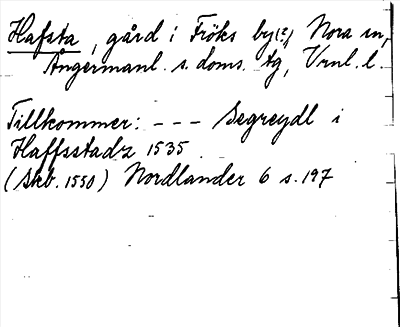 Hafsta, gård i Fröks by(?), Nora sn,
Ångermanl. s. doms. tg, Vrnl. l.
Tillkommer: --- Segreydl i
Haffsstadz 1535
(Skb. 1550) Nordlander 6 s. 197